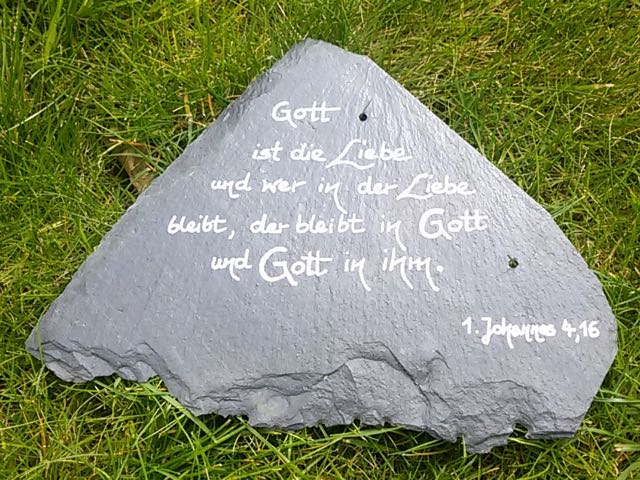 Gott
ist die Liebe
und wer in der Liebe
bleibt, der bleibt in Gott
und Gott in ihm.
1. Johannes 4,16